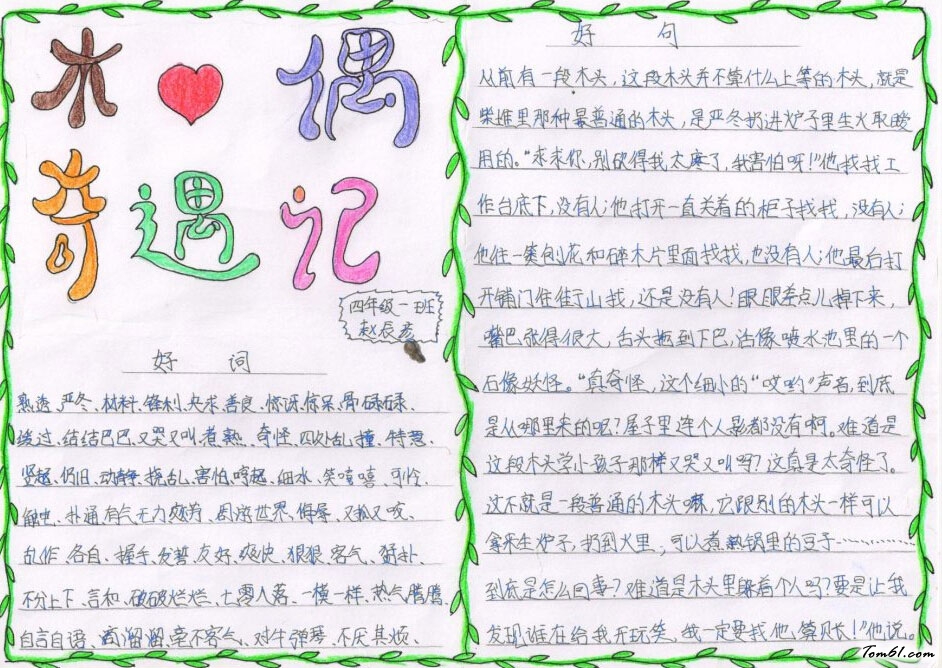 木 偶
奇遇记
四年级一班
赵辰彦
好 词
熟透、严冬、材料、锋利、央求、善良、惊讶、惊呆、骨碌碌、
绕过、结结巴巴、又哭又叫、煮熟、奇怪、四处乱撞、特意、
竖起、仍旧、动静、挠乱、害怕、哼起、细水、笑嘻嘻、可怜、
触虫、扑通有气无力、周游世界、侮辱、又抓又咬、
乱作、各自、握手、发誓、友好、爽快、狠狠、客气、猛扑、
不分上下、言和、破破烂烂、七零八落、一模一样、热气腾腾、
自言自语、滴溜溜、毫不客气、对牛弹琴、不厌其烦、
好 句
从前有一段木头，这段木头并不算什么上等的木头，就是
柴堆里那种最普通的木头，是严冬扔进炉子里生火取暖
用的。“求求你，别砍得我太疼了，我害怕呀！”他找找工
作台底下，没有人；他打开一直关着的柜子找找，没有人；
他往一篓刨花和碎木片里面找找，也没有人；他最后打
开铺门往街上找，还是没有人！眼眼差点儿掉下来，
嘴巴张得很大，舌头拖到下巴，活像喷水池里的一个
石像妖怪。“真奇怪，这个细小的“哎哟”声音，到底
是从哪里来的呢？屋子里连个人影都没有啊。难道是
这段木头学小孩子那样又哭又叫吗？这真是太奇怪了。
这不就是一段普通的木头嘛，它跟别的木头一样可以
拿来生炉子，扔到火里，可以煮熟锅里的豆子…………
到底是怎么回事？难道是木头里躲着个人吗？要是让我
发现谁在给我开玩笑，我一定要找他算账！”他说。
Tom61.com